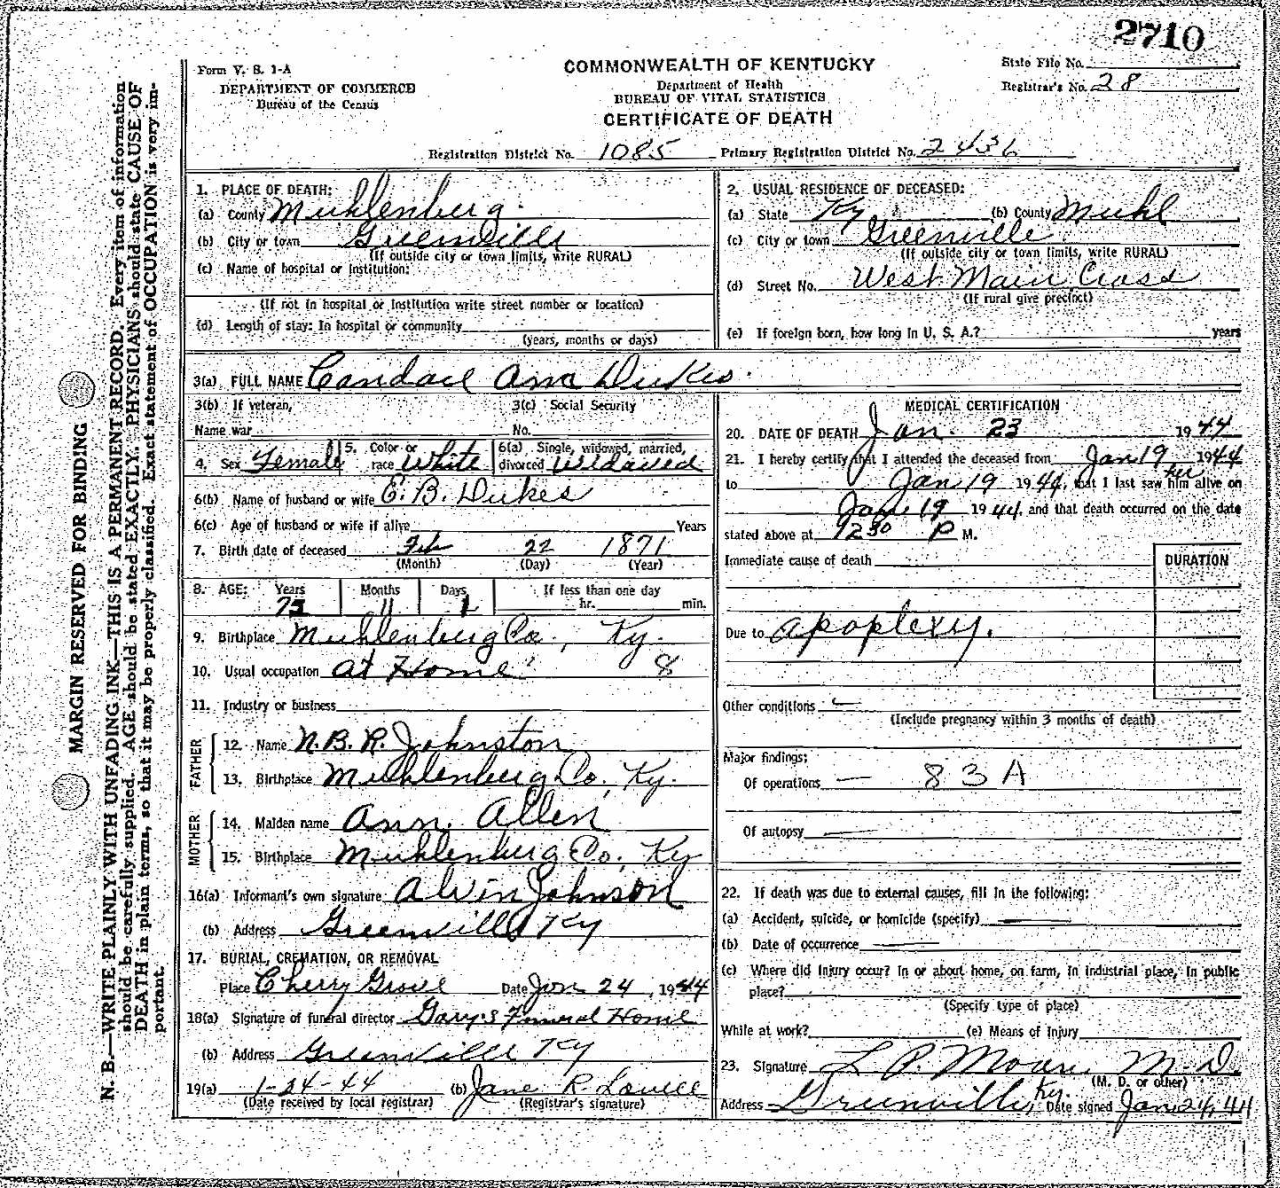 2710
Form V. S. 1-A
DEPARTMENT OF COMMERCE
Bureau of the Census
COMMONWEALTH OF KENTUCKY
Department of Health
BUREAU OF VITAL STATISTICS
CERTIFICATE OF DEATH
State File No.
Registrar's No. 28
Registration District No. 1085 Primary Registration District No. 2436
MARGIN RESERVED FOR BINDING
N. B.—WRITE PLAINLY WITH UNFADING INK—THIS IS A PERMANENT RECORD. Every item of information
should be carefully supplied. AGE should be stated EXACTLY. PHYSICIANS should state CAUSE OF
DEATH in plain terms, so that it may be properly classified. Exact statement of OCCUPATION is very im-
portant.
1. PLACE OF DEATH:
(a) County Muhlenberg
(b) City or town Greenville
(If outside city or town limits, write RURAL)
(c) Name of hospital or institution:
(If not in hospital or institution write street number or location)
(d) Length of stay: In hospital or community
(years, months or days)
2. USUAL RESIDENCE OF DECEASED:
(a) State Ky (b) County Muhl
(c) City or town Greenville
(If outside city or town limits, write RURAL)
(d) Street No. West Main Cross
(If rural give precinct)
(e) If foreign born, how long in U. S. A.? years
3(a) FULL NAME Candace Ann Dukes
3(b) If veteran, 3(c) Social Security
Name war No.
4. Sex Female 5. Color or race White 6(a) Single, widowed, married, divorced Widowed
6(b) Name of husband or wife E. B. Dukes
6(c) Age of husband or wife if alive Years
7. Birth date of deceased Feb 22 1871
(Month) (Day) (Year)
8. AGE: Years Months Days If less than one day
11 1 hr. min.
9. Birthplace Muhlenberg Co., Ky.
10. Usual occupation at Home 8
11. Industry or business
FATHER
12. Name N.B.R. Johnston
13. Birthplace Muhlenberg Co. Ky.
MOTHER
14. Maiden name Ann Allen
15. Birthplace Muhlenberg Co. Ky
16(a) Informant's own signature Alvin Johnson
(b) Address Greenville Ky
17. BURIAL, CREMATION, OR REMOVAL
Place Cherry Grove Date Jan 24, 1944
18(a) Signature of funeral director Gary's Funeral Home
(b) Address Greenville Ky
19(a) 1-24-44 (b) Jane R. Lovell
(Date received by local registrar) (Registrar's signature)
MEDICAL CERTIFICATION
20. DATE OF DEATH Jan. 23 1944
21. I hereby certify that I attended the deceased from Jan 19 1944
to Jan 19 1944, that I last saw him her alive on
Jan 19 1944, and that death occurred on the date
stated above at 1230 P M.
Immediate cause of death DURATION
Due to apoplexy.
Other conditions —
(Include pregnancy within 3 months of death)
Major findings:
Of operations — 83A
Of autopsy —
22. If death was due to external causes, fill in the following:
(a) Accident, suicide, or homicide (specify) —
(b) Date of occurrence —
(c) Where did injury occur? In or about home, on farm, in industrial place, in public
place?
(Specify type of place)
While at work? (e) Means of Injury
23. Signature L. P. Moore M.D.
(M. D. or other)
Address Greenville, Ky. Date signed Jan 24, 44